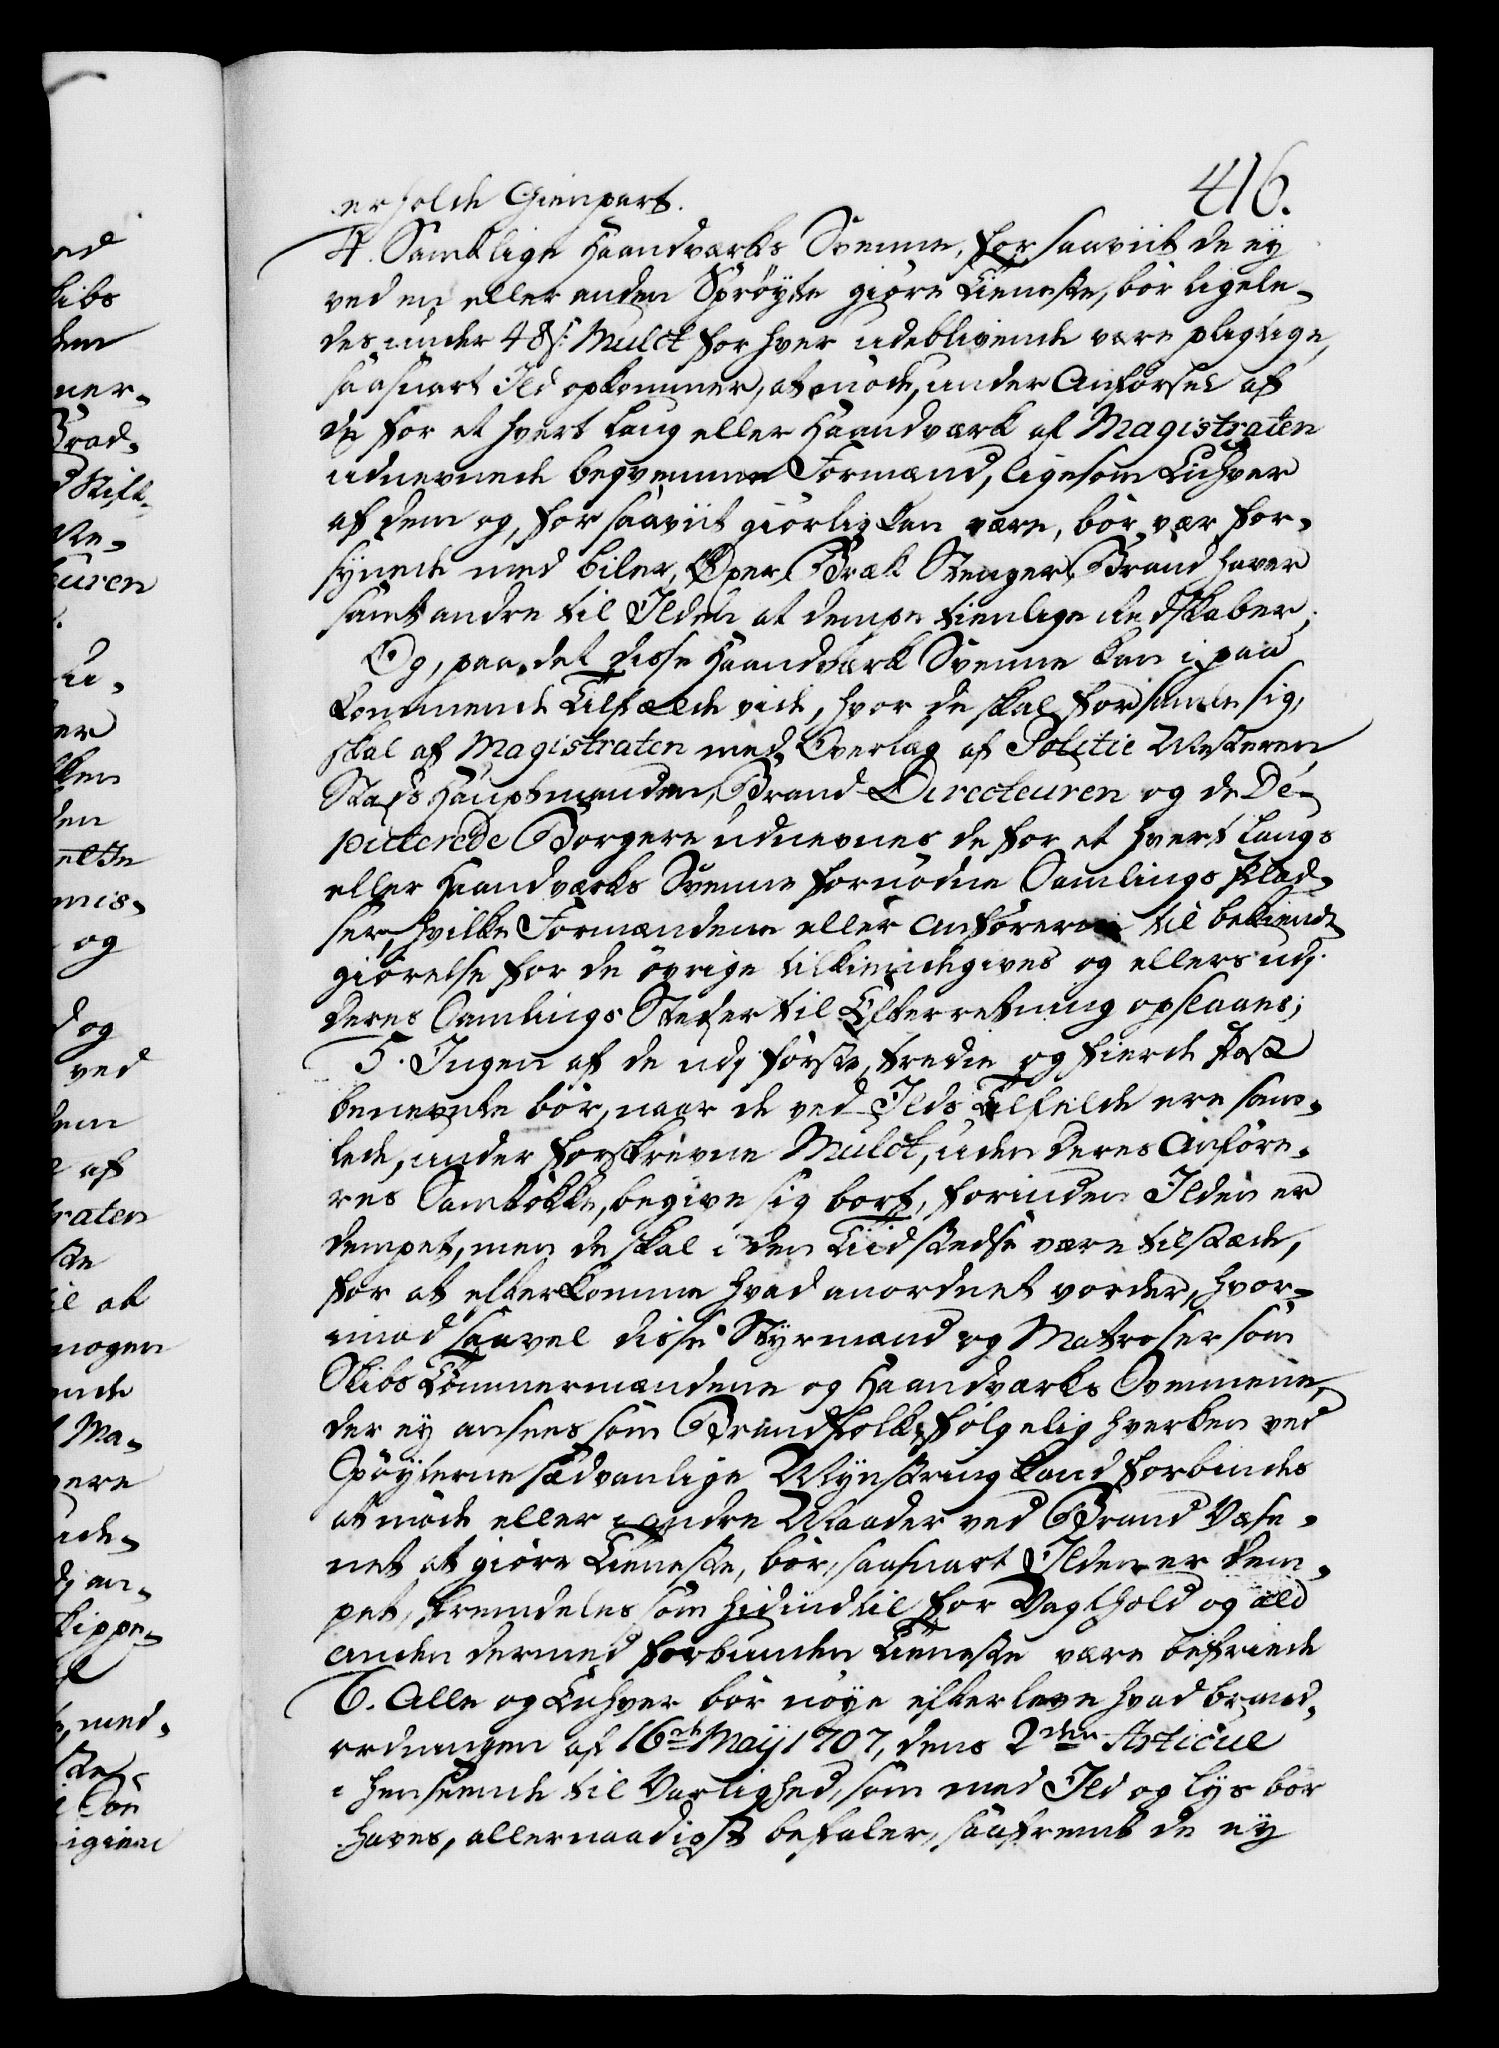 416.
erholde Gienpart.
4. Samtlige Haandværks Svenne, for saaviit de ey
ved en eller anden Sprøyte giøre Tieneste, bør ligele-
des under 48 s: Mulct for hver udeblivende være pligtige,
saasnart Ild opkommer, at møde, under Anførsel af
de for et hvert Laug eller Haandværk af Magistraten
udnevnede beqvemme Formænd, ligesom Enhver
af dem og, for saaviit giørlig kan være, bør vær for-
synede med Biler, Øxer, Bræk Stenger, Brand Hager
samt andre til Ilden at dempe tienlige Redskaber;
Og, paa det disse Haandværk Svenne kan i paa
kommende Tilfælde vide, hvor de skal forsamle sig,
skal af Magistraten med Overlæg af Politie Mesteren
Stads Hauptmanden, Brand Directeuren og de De-
putterede Borgere udnevnes de for et hvert Laugs
eller Haandværks Svenne fornødne Samlings Plad-
ser, hvilke Formændene eller Anførerne til bekiendt
giørelse for de øvrige tilkiendegives og ellers udj
deres Samlings Steder til Efterretning opslaaes;
5. Ingen af de udj første, tredie og fierde Post
benevnte bør, naar de ved Ilds Tilfælde ere sam-
lede, under forskrevne Mulct, uden deres Anføre-
res Samtøkke, begive sig bort, forinden Ilden er
dempet, men de skal i den Tiid stedse være tilstæde,
for at efterkomme hvad anordnet vorder, hvor-
imod saavel disse Styrmænd og Matroser som
Skibs Tømmermændene og Haandværks Svennene,
der ey ansees som Brandfolk, følgelig hverken ved
Spøyterne sædvanlige Mynstring kand forbindes
at møde eller i andre Maader ved Brand Væse-
net at giøre Tieneste, bør, saasnart Ilden er dem-
pet, fremdeles som hidindtil for Vagthold og ald
anden dermed forbunden Tieneste være befriede
6. Alle og Enhver bør nøye efterleve hvad Brand-
ordningen af 16de Maij 1707, dens 2den Articul
i henseende til Varlighed, som med Ild og Lys bør
haves, allernaadigst befaler, saafremt de ey